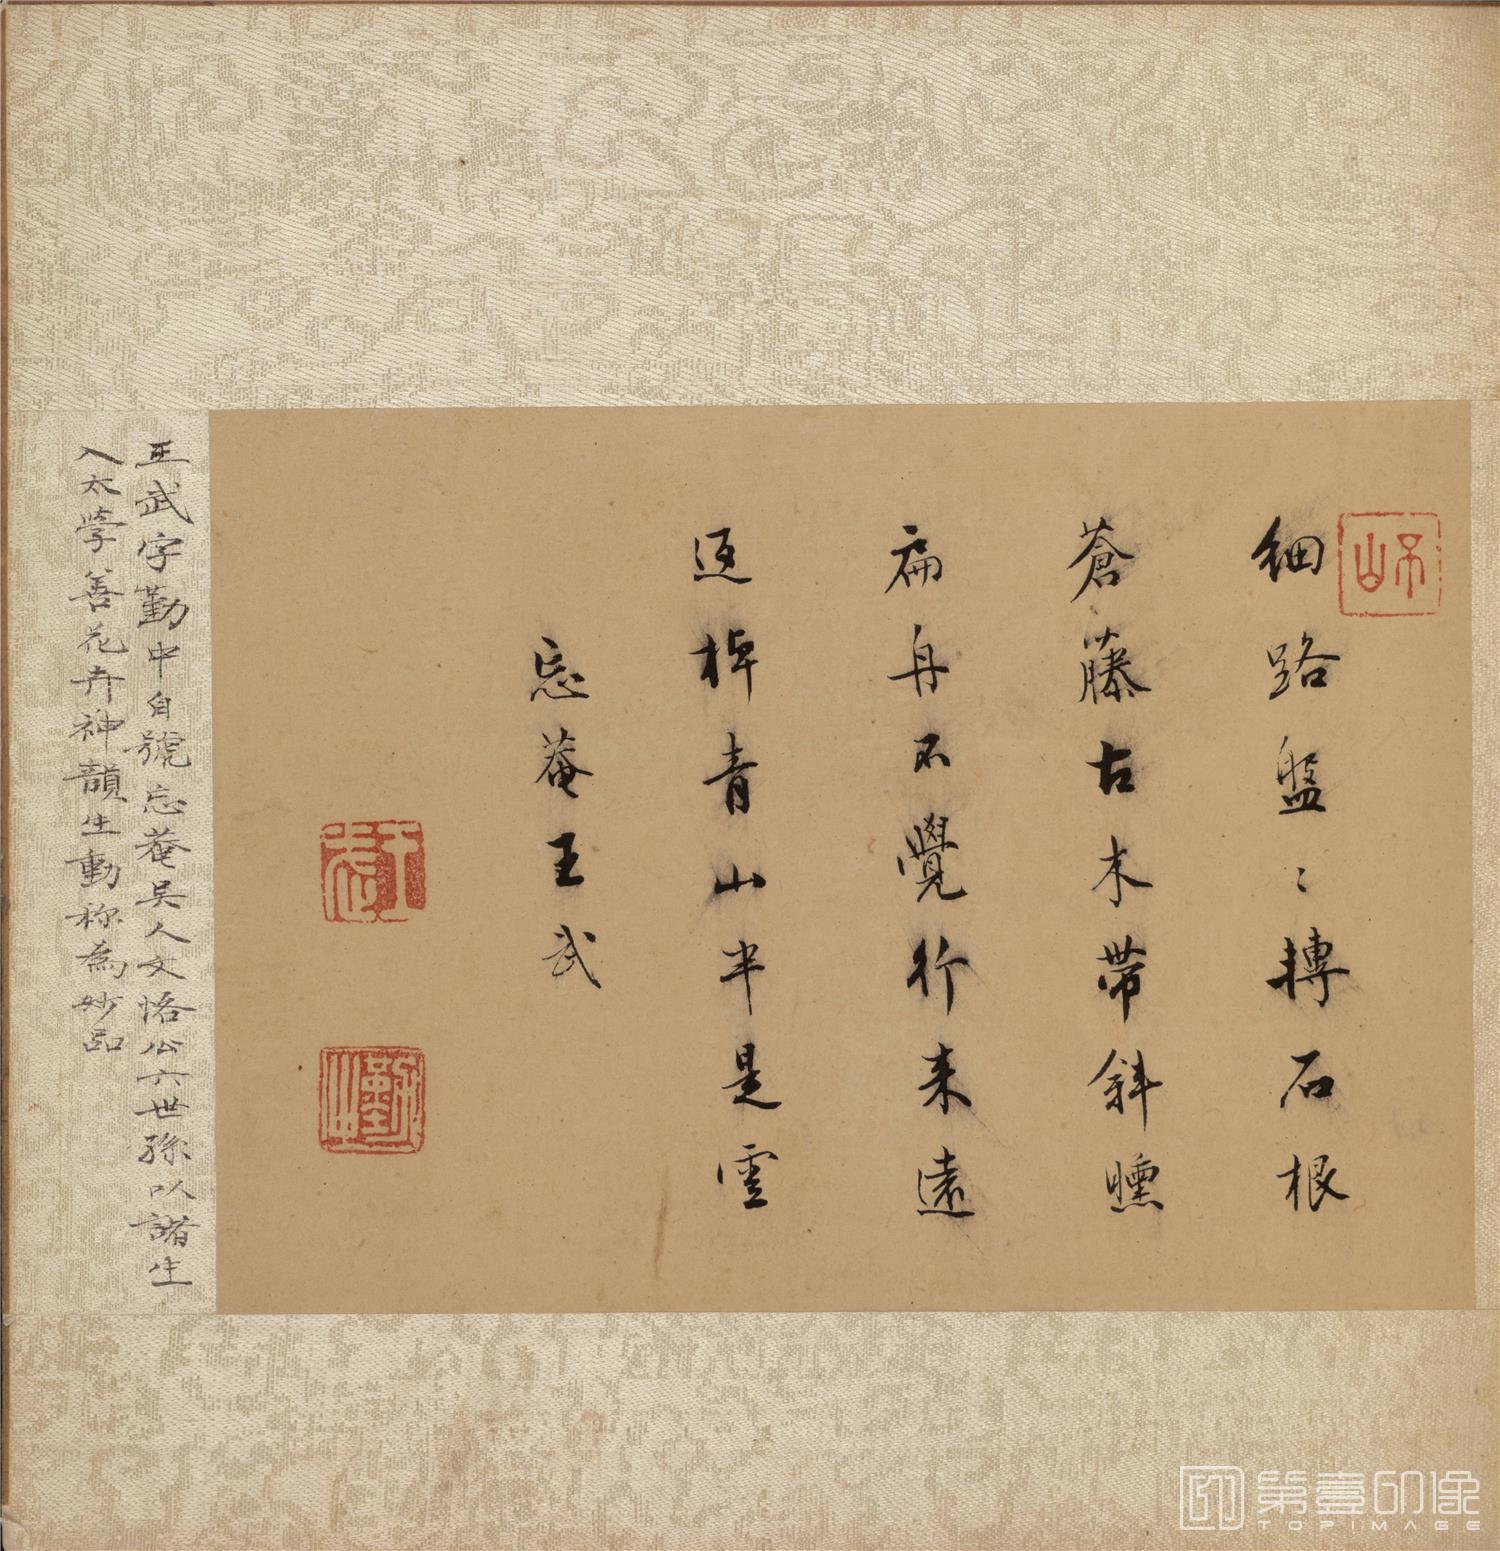 細路盤〻轉石根
蒼藤古木帶斜曛
扁舟不覺行來遠
返棹青山半是雲
忘菴王武
王武字勤中自號忘菴吳人文恪公六世孫以諸生
入太學善花卉神韻生動称為妙品
第壹印像
TOPIMAGE